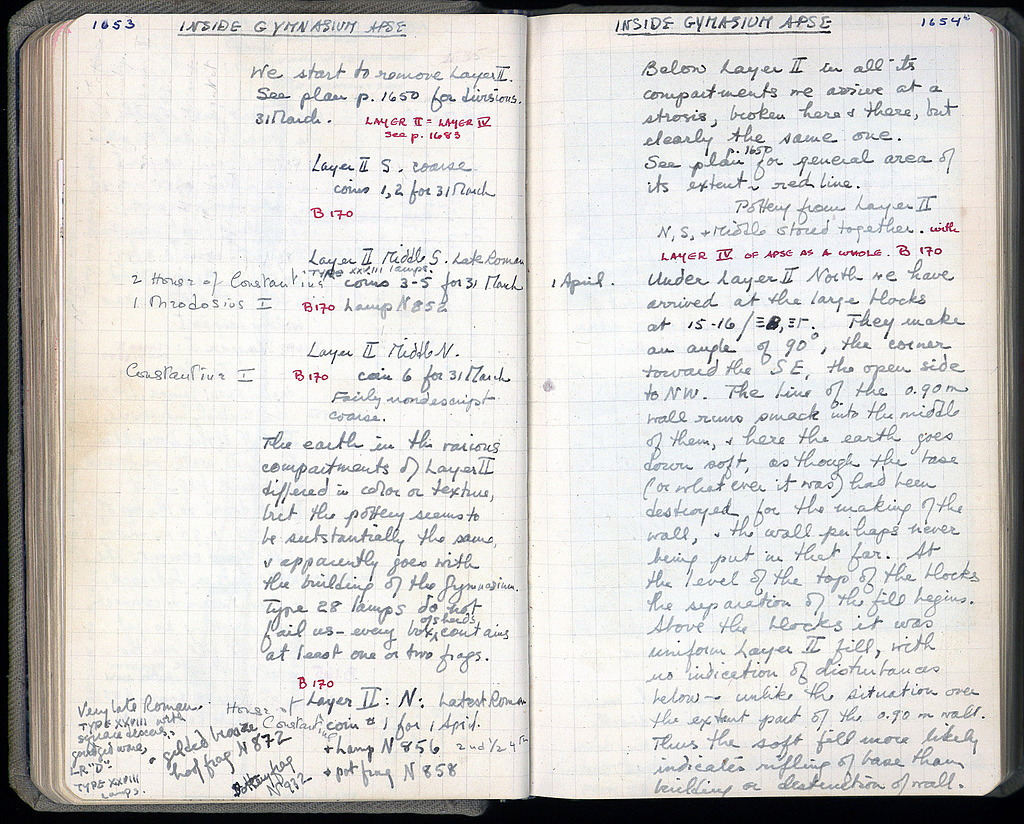 1653
INSIDE GYMNASIUM APSE
We start to remove Layer II.
See plan p. 1650 for divisions.
31 March.
LAYER II = LAYER IV
See p. 1683
Layer II S. coarse
coins 1, 2 for 31 March
B 170
Layer II Middle S. Late Roman
TYPE XXVIII lamps.
2 House of Constantine
coins 3-5 for 31 March
1 Theodosius I
B 170 Lamp N 852
Layer II Middle N.
Constantius I
B 170 coin 6 for 31 March
Fairly nondescript
coarse.
The earth in the various
compartments of Layer II
differed in color or texture,
but the pottery seems to
be substantially the same,
& apparently goes with
the building of the Gymnasium.
Type 28 lamps do not
fail us - every box of sherds contains
at least one or two frags.
B 170
Layer II: N: Latest Roman
House of Constantine
coin # 1 for 1 April.
+ lamp N 856 2nd 1/2 4th
+ pot frag N 858
Very late Roman
TYPE XXVIII with
square
gouged ware,
LR "D"
TYPE XXVIII
Lamps.
gilded bronze
hoof frag N 872
Pottery frag
N 932
INSIDE GYMASIUM APSE
1654
Below Layer II in all its
compartments we arrive at a
strosis, broken here & there, but
clearly the same one.
See plan p. 1650 for general area of
its extent - red line.
Pottery from Layer II
N, S, + Middle stored together. with
LAYER IV OF APSE AS A WHOLE. B 170
1 April. Under Layer II North we have
arrived at the large blocks
at 15-16/ΞB, ΞΓ. They make
an angle of 90°, the corner
toward the SE, the open side
to NW. The line of the 0.90 m
wall runs smack into the middle
of them, & here the earth goes
down soft, as though the base
(or what ever it was) had been
destroyed for the making of the
wall, & the wall perhaps never
being put in that far. At
the level of the top of the blocks
the separation of the fill begins.
Above the blocks it was
uniform Layer II fill, with
no indication of disturbances
below - unlike the situation over
the extant part of the 0.90 m wall.
Thus the soft fill more likely
indicates rifling of base than
building or destruction of wall.